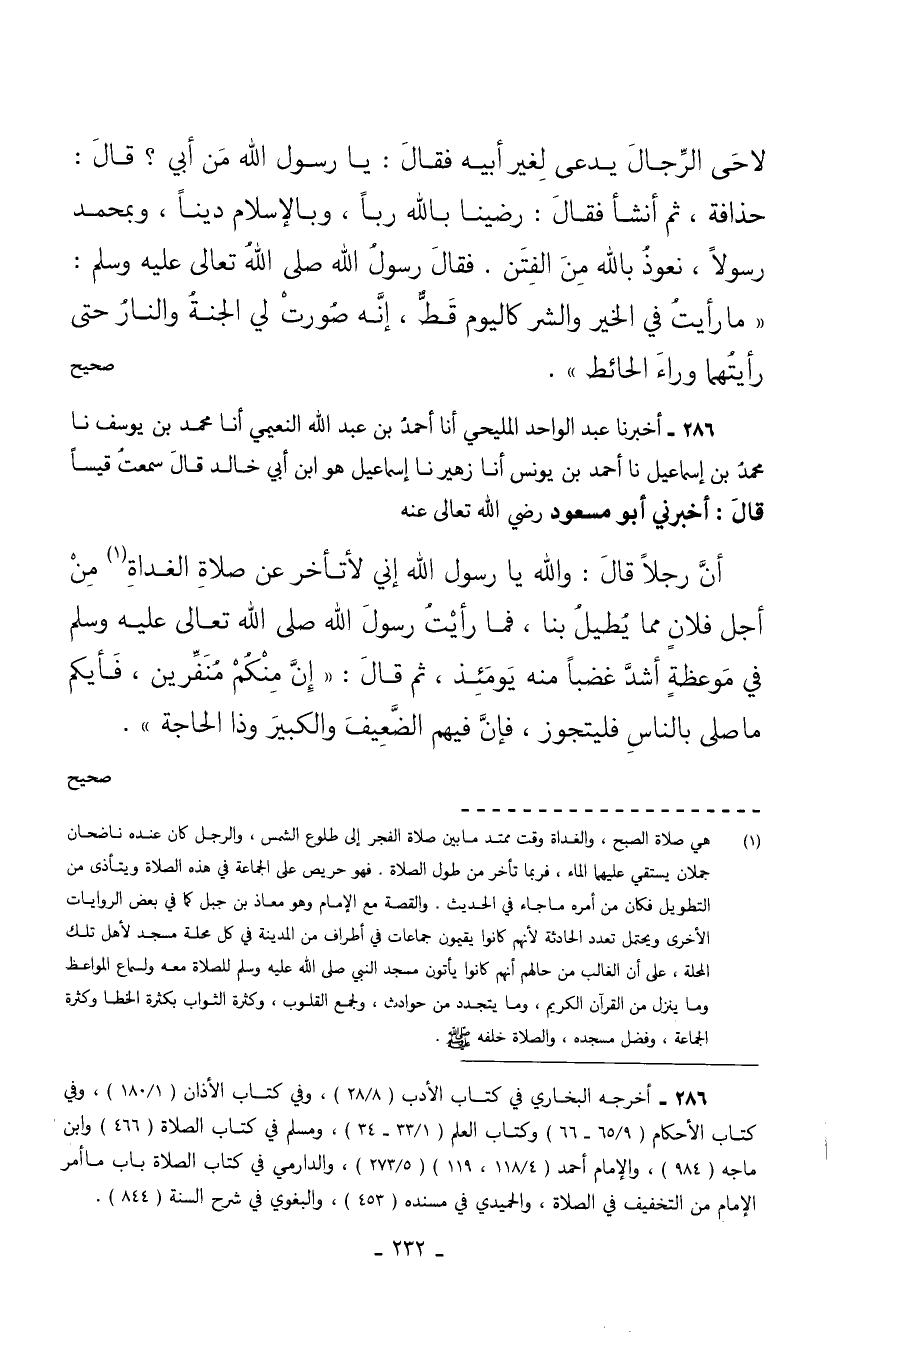 لاحَى الرِّجالَ يـدعى لِغير أبيـه فقـالَ : يـا رسـول الله مَن أبي ؟ قـالَ :
حذافة ، ثم أنشـأ فقـالَ : رضينـا بـالله ربـاً ، وبـالإسلام دينـاً ، وبمحمـد
رسولاً ، نعوذُ بالله مِنَ الفِتَن . فقالَ رسولُ الله صلى اللهُ تعالى عليه وسلم :
« ما رأيتُ في الخير والشر كاليوم قَـطُّ ، إنَّـه صُورتْ لي الجنـةُ والنـارُ حتى
رأيتُهما وراءَ الحائط » .
صحيح
٢٨٦ ـ أخبرنا عبد الواحد المليحي أنا أحمدُ بن عبد الله النعيمي أنـا محمـد بن يوسف نـا
محمدُ بن إسماعيل نا أحمد بن يونس أنـا زهير نـا إسماعيل هو ابن أبي خـالـد قـالَ سمعتُ قيسـاً
قالَ : أخبرني أبو مسعود رضي الله تعالى عنه
أنَّ رجلاً قالَ : والله يا رسول الله إني لأتـأخر عن صلاةِ الغـداةِ(١) مِنْ
أجل فلانٍ مما يُطيلُ بنا ، فمـا رأيْتُ رسولَ الله صلى الله تعـالى عليـه وسلم
في مَوعظةٍ أشدَّ غضباً منه يَومَئِـذ ، ثم قـالَ : « إنَّ مِنْكُمْ مُنَفِّرين ، فَـأيكم
ما صلى بالناسِ فليتجوز ، فإنَّ فيهم الضَّعِيفَ والكبيرَ وذا الحاجة » .
صحيح
(١) هي صلاة الصبح ، والغداة وقت ممتد مـابين صلاة الفجر إلى طلوع الشمس ، والرجل كان عنـده نـاضحـان
جملان يستقي عليهما الماء ، فربما تأخر من طول الصلاة . فهو حريص على الجماعة في هذه الصلاة ويتـأذى من
التطويل فكان من أمره مـاجـاء في الحـديث . والقصة مع الإمـام وهو معـاذ بن جبل كما في بعض الروايـات
الأخرى ويحتمل تعدد الحادثة لأنهم كانوا يقيمون جماعات في أطراف من المدينة في كل محلة مسجـد لأهل تلـك
المحلة ، على أن الغالب من حالهم أنهم كانوا يأتون مسجد النبي صلى الله عليه وسلم للصلاة معه ولسماع المواعـظ
ومـا ينزل من القرآن الكريم ، ومـا يتجـدد من حوادث ، ولجمع القلوب ، وكثرة الثواب بكثرة الخطـا وكثرة
الجماعة ، وفضل مسجده ، والصلاة خلفه ﷺ .
٢٨٦ ـ أخرجـه البخاري في كتـاب الأدب ( ٢٨/٨ ) ، وفي كتـاب الأذان ( ١٨٠/١ ) ، وفي
كتـاب الأحكام ( ٦٥/٩ ـ ٦٦ ) وكتـاب العلم ( ٣٣/١ ـ ٣٤ ) ، ومسلم في كتـاب الصلاة ( ٤٦٦ ) وابن
ماجه ( ٩٨٤ ) ، والإمام أحمد ( ١١٨/٤ ، ١١٩ ) ( ٢٧٣/٥ ) ، والدارمي في كتاب الصلاة بـاب مـا أمر
الإمام من التخفيف في الصلاة ، والحميدي في مسنده ( ٤٥٣ ) ، والبغوي في شرح السنة ( ٨٤٤ ) .
ـ ٢٣٢ ـ